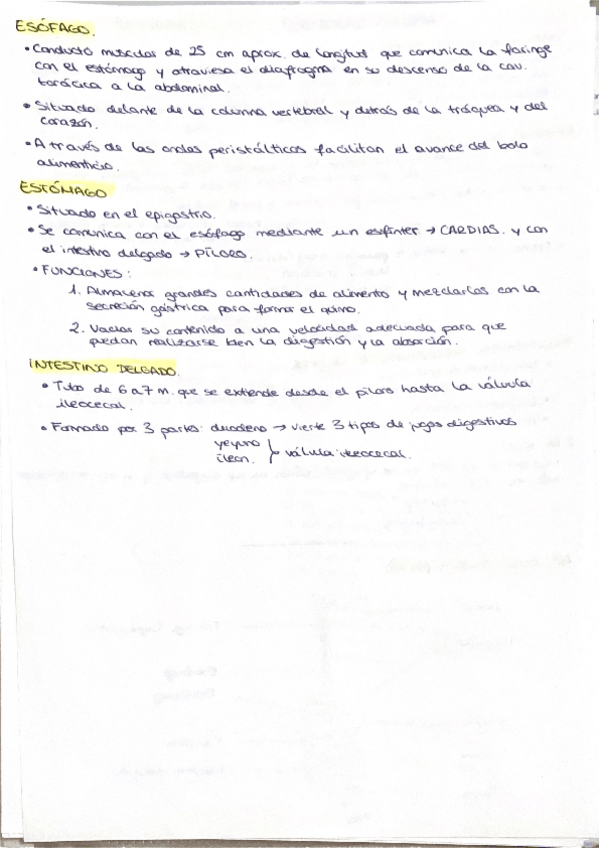 ESÓFAGO.
• Conducto muscular de 25 cm aprox. de longitud que comunica la faringe
con el estómago y atraviesa el diafragma en su descenso de la cav.
torácica a la abdominal.
• Situado delante de la columna vertebral y detrás de la tráquea y del
corazón.
• A través de las ondas peristálticas facilitan el avance del bolo
alimenticio.
ESTÓMAGO
• Situado en el epigastrio.
• Se comunica con el esófago mediante un esfínter → CARDIAS. y con
el intestino delgado → PÍLORO.
• FUNCIONES:
1. Almacenar grandes cantidades de alimento y mezclarlas con la
secreción gástrica para formar el quimo.
2. Vaciar su contenido a una velocidad adecuada para que
puedan realizarse bien la digestión y la absorción.
INTESTINO DELGADO.
• Tubo de 6 a 7 m. que se extiende desde el píloro hasta la válvula
ileocecal.
• Formado por 3 partes: duodeno → vierte 3 tipos de jugos digestivos
yeyuno
íleon. } válvula ileocecal.